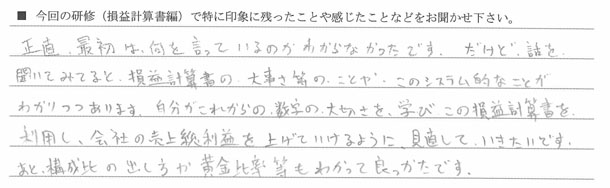 ■ 今回の研修（損益計算書編）で特に印象に残ったことや感じたことなどをお聞かせ下さい。
正直、最初は、何を言っているのかわからなかったです。だけど、話を
聞いてみてると、損益計算書の、大事さ等の、ことや、このシステム的なことが
わかりつつあります。自分がこれからの、数字の、大切さを、学び この損益計算書を
利用し、会社の売上総利益を上げていけるように、見直して、いきたいです。
あと、構成比の出し方が黄金比率等もわかって良っかたです。